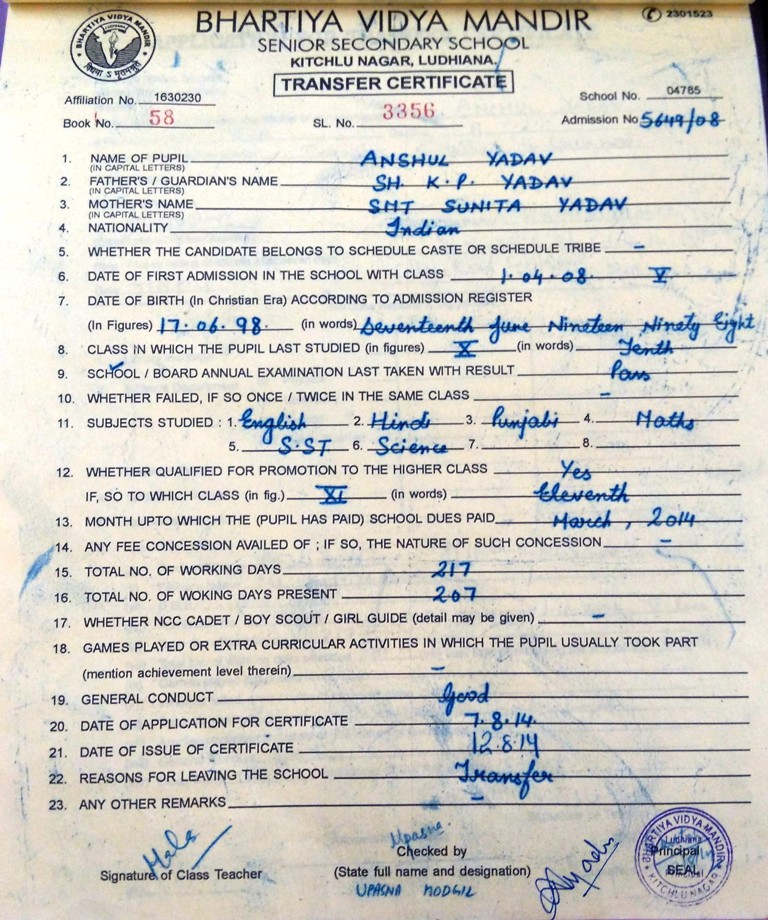 BHARTIYA VIDYA MANDIR
2301523
SENIOR SECONDARY SCHOOL
KITCHLU NAGAR, LUDHIANA.
TRANSFER CERTIFICATE
Affiliation No. 1630230 School No. 04785
Book No. 58 SL. No. 3356 Admission No 5649/08
1. NAME OF PUPIL ANSHUL YADAV
(IN CAPITAL LETTERS)
2. FATHER'S / GUARDIAN'S NAME SH. K.P. YADAV
(IN CAPITAL LETTERS)
3. MOTHER'S NAME SMT SUNITA YADAV
(IN CAPITAL LETTERS)
4. NATIONALITY Indian
5. WHETHER THE CANDIDATE BELONGS TO SCHEDULE CASTE OR SCHEDULE TRIBE -
6. DATE OF FIRST ADMISSION IN THE SCHOOL WITH CLASS 1.04.08. V
7. DATE OF BIRTH (In Christian Era) ACCORDING TO ADMISSION REGISTER
(In Figures) 17.06.98. (in words) Seventeenth June Nineteen Ninety Eight
8. CLASS IN WHICH THE PUPIL LAST STUDIED (in figures) X (in words) Tenth
9. SCHOOL / BOARD ANNUAL EXAMINATION LAST TAKEN WITH RESULT Pass
10. WHETHER FAILED, IF SO ONCE / TWICE IN THE SAME CLASS -
11. SUBJECTS STUDIED : 1. English 2. Hindi 3. Punjabi 4. Maths
5. S.ST 6. Science 7. 8.
12. WHETHER QUALIFIED FOR PROMOTION TO THE HIGHER CLASS Yes
IF, SO TO WHICH CLASS (in fig.) XI (in words) Eleventh
13. MONTH UPTO WHICH THE (PUPIL HAS PAID) SCHOOL DUES PAID March, 2014
14. ANY FEE CONCESSION AVAILED OF ; IF SO, THE NATURE OF SUCH CONCESSION -
15. TOTAL NO. OF WORKING DAYS 217
16. TOTAL NO. OF WOKING DAYS PRESENT 207
17. WHETHER NCC CADET / BOY SCOUT / GIRL GUIDE (detail may be given) -
18. GAMES PLAYED OR EXTRA CURRICULAR ACTIVITIES IN WHICH THE PUPIL USUALLY TOOK PART
(mention achievement level therein) -
19. GENERAL CONDUCT Good
20. DATE OF APPLICATION FOR CERTIFICATE 7.8.14.
21. DATE OF ISSUE OF CERTIFICATE 12.8.14
22. REASONS FOR LEAVING THE SCHOOL Transfer
23. ANY OTHER REMARKS -
Upasna
Signature of Class Teacher Checked by Principal
(State full name and designation) SEAL
UPASNA MODGIL
BHARTIYA VIDYA MANDIR
Ludhiana
Principal
KITCHLU NAGAR